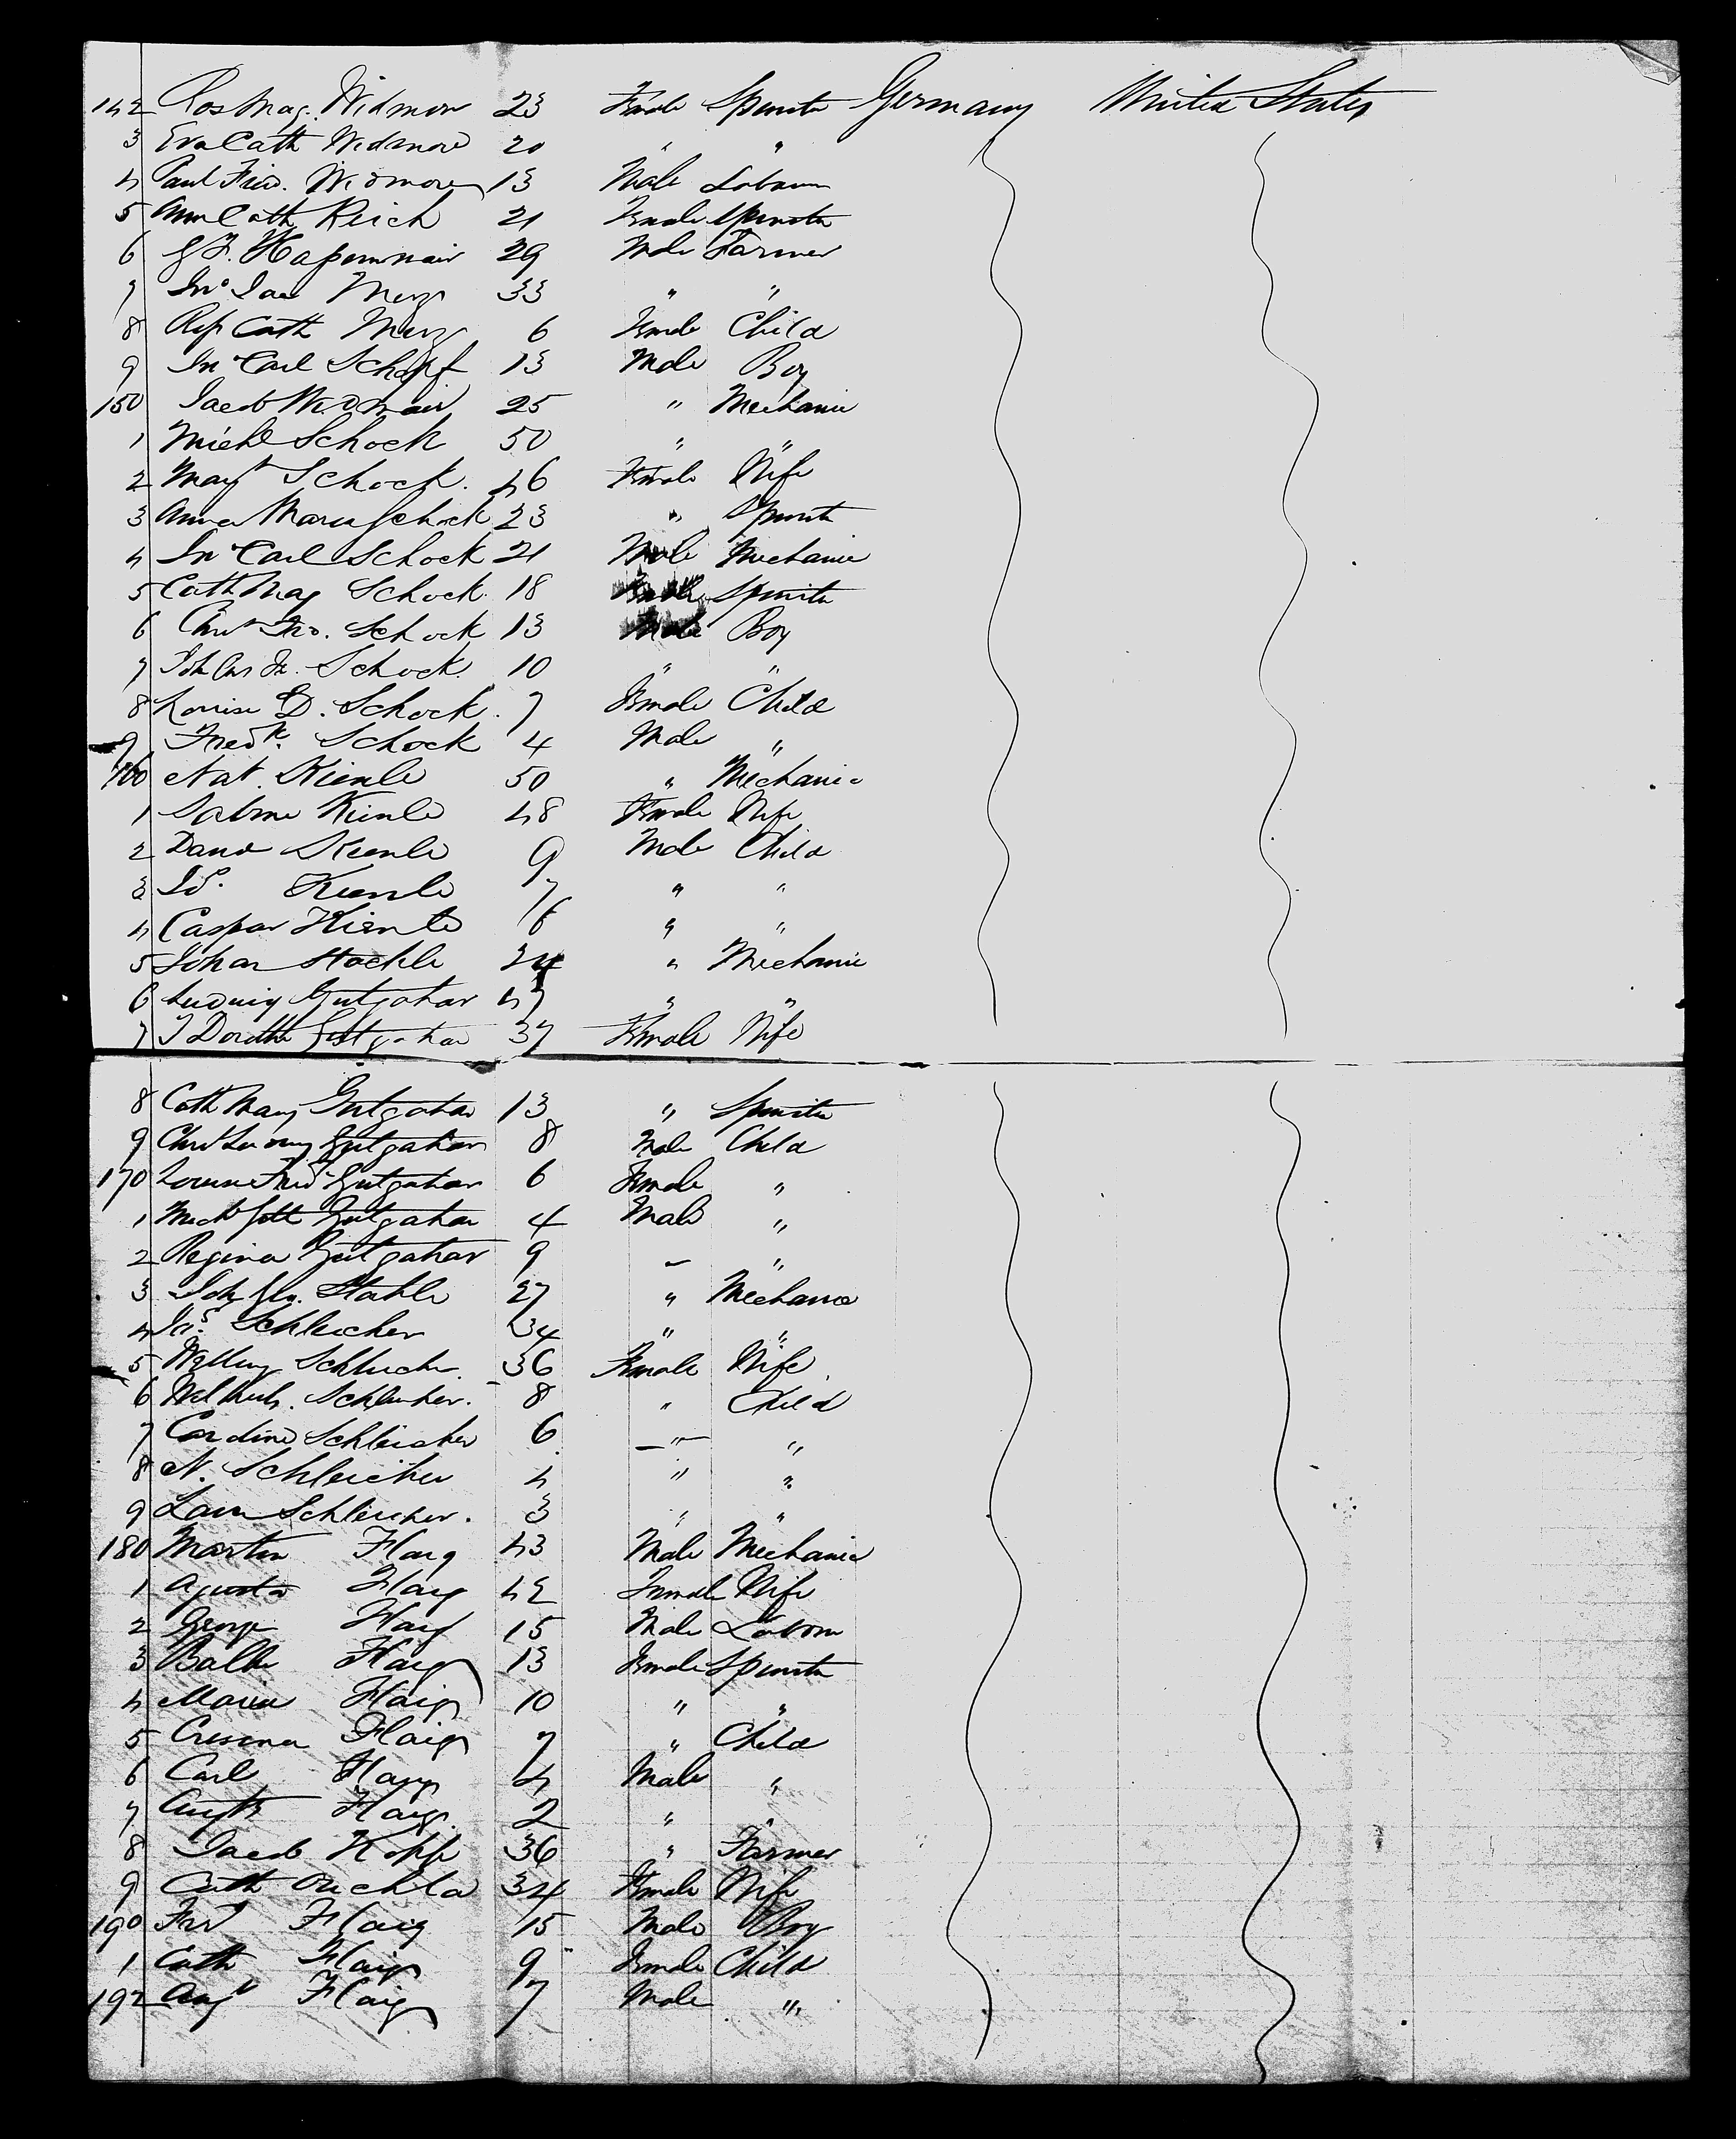 142 Ros Mag. Widmow 23 Female Spinster Germany United States
3 Eva Cath Widmow 20 " "
4 Paul Fried. Widmow 13 Male Labour
5 Ann Cath Reich 21 Female Spinster
6 29 Male Farmer
7 Merz 33 " "
8 Cath Merz 6 Female Child
9 Jno Carl Schopf 13 Male Boy
150 Jacob Widmair 25 " Mechanic
1 Michl Schock 50 " "
2 Magt Schock. 46 Female Wife
3 Anna Maria Schock 23 " Spinster
4 Jno Carl Schock 21 Male Mechanic
5 Cath Mag Schock 18 Female Spinster
6 Schock 13 Male Boy
7 Joh Schock. 10 " "
8 Louise D. Schock. 7 Female Child
9 Fredk. Schock 4 Male "
160 Nat. Kienle 50 " Mechanic
1 Sabine Kienle 48 Female Wife
2 David Kienle 9 Male Child
3 Kienle 7 " "
4 Caspar Kienle 6 " "
5 Johan Stockle 24 " Mechanic
6 Ludwig Gutgahar 47 " "
7 J Dorothe Gutgahar 37 Female Wife
8 Cath Marg Gutgahar 13 " Spinster
9 Chrs Ludwig Gutgahar 8 Male Child
170 Louise Fried Gutgahar 6 Female "
1 Gutgahar 4 Male "
2 Regina Gutgahar 9 – "
3 Joh Stahle 27 " Mechanic
4 Jas. Schleicher 34 " "
5 Schleicher. 36 Female Wife
6 Schleicher. 8 " Child
7 Caroline Schleicher 6 " "
8 N. Schleicher 4 " "
9 Schleicher. 3 " "
180 Martin Flaig 43 Male Mechanic
1 Agusta Flaig 42 Female Wife
2 George Flaig 15 Male Labour
3 Flaig 13 Female Spinster
4 Maria Flaig 10 " "
5 Flaig 7 " Child
6 Carl Flaig 4 Male "
7 Flaig. 2 " "
8 Jacob Kopp 36 " Farmer
9 Cath 34 Female Wife
190 Flaig 15 Male Boy
1 Cath Flaig 9 Female Child
192 Flaig 7 Male "